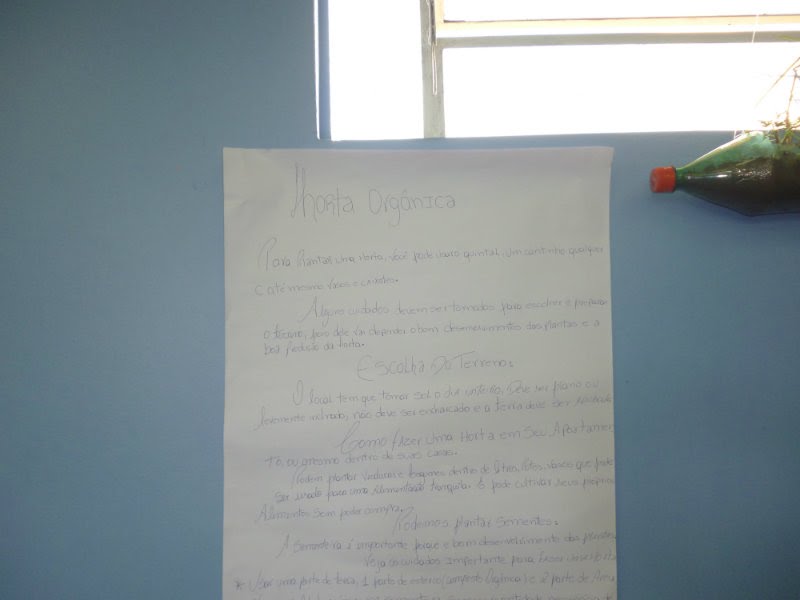 Horta Orgânica
Para Plantar uma horta, você pode usar o quintal, um cantinho qualquer
e até mesmo vasos e caixotes.
Alguns cuidados devem ser tomados para escolher e preparar
o terreno, pois dele vai depender o bom desenvolvimentos das plantas e a
boa da horta.
Escolha Do Terreno.
O local tem que tomar sol o dia inteiro. Deve ser plano ou
levemente inclinado, não deve ser encharcado e a terra deve ser
Como fazer uma Horta em Seu Apartamen
to, ou mesmo dentro de suas casas.
Podem plantar dentro de vasos que pode
ser usado para uma Alimentação tranquila. E pode cultivar seus próprios
Alimentos sem poder compra.
Podemos plantar Sementes.
A Sementeira é importante para o bom desenvolvimento das plantas
Veja os cuidados importante para fazer
* Usar uma parte de terra, 1 parte de esterco (composto Orgânico) e 2 parte de Areia